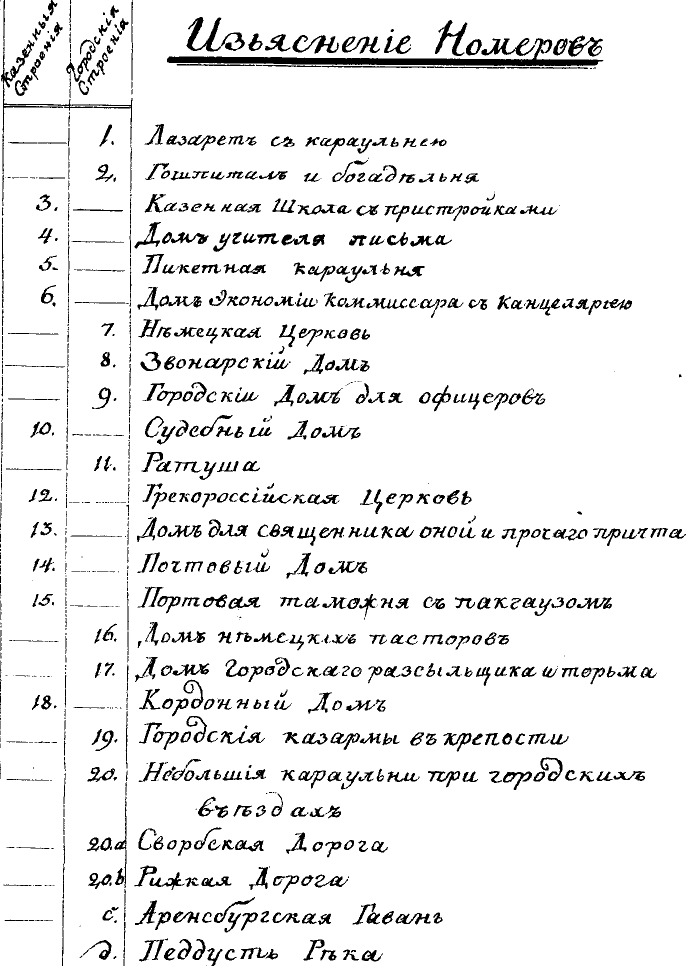 Казенныя Строенія
Городскія Строенія
Изьясненіе Номеровъ
1. Лазаретъ съ караульнею
2. Гошпиталъ и богадѣльня
3. Казенная Школа съ пристройками
4. Домъ учителя письма
5. Пикетная караульня
6. Домъ Экономіи Коммиссара съ Канцеляріею
7. Нѣмецкая Церковь
8. Звонарскій Домъ
9. Городскіи Домъ для офицеровъ
10. Судебный Домъ
11. Ратуша
12. Грекороссійская Церковь
13. Домъ для священника оной и прочаго причта
14. Почтовый Домъ
15. Портовая таможня съ пакгаузомъ
16. Домъ нѣмецкихъ пасторовъ
17. Домъ Городскаго разсыльщика и тюрьма
18. Кордонный Домъ
19. Городскія казармы въ крепости
20. Небольшія караульни при городскихъ
въѣздахъ
20.a Сворбская Дорога
20.b Рижкая Дорога
c. Аренсбургская Гавань
д. Педдусть Рѣка